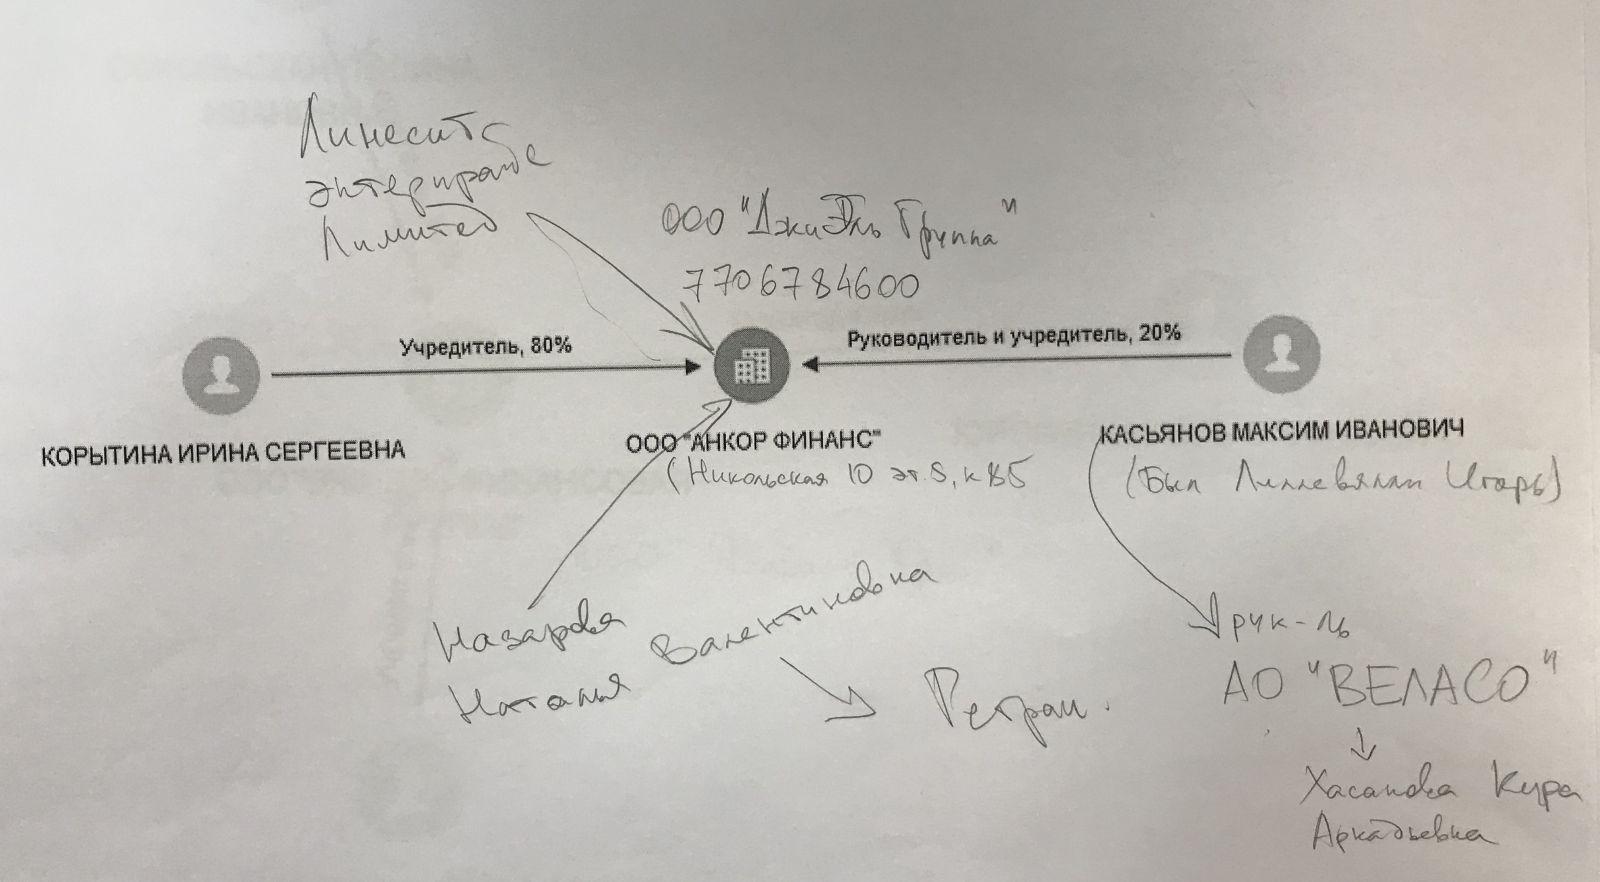 Линесит
энтерпрайзе
Лимитед
ООО "ДжиЭль Группа"
7706784600
Учредитель, 80%
Руководитель и учредитель, 20%
КОРЫТИНА ИРИНА СЕРГЕЕВНА
ООО "АНКОР ФИНАНС"
КАСЬЯНОВ МАКСИМ ИВАНОВИЧ
(Никольская 10 эт. 5,
(Был Лиллевяли Игорь)
Назарова
Наталья Валентиновна
рук-ль
АО "ВЕЛАСО"
Хасанова Кира
Аркадьевна